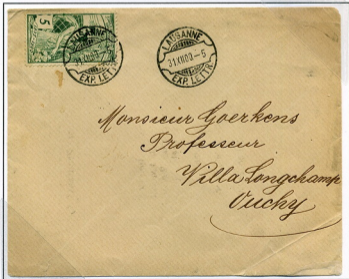 5
LAUSANNE
31.XII.00.–5
EXP. LETTR.
LAUSANNE
31.XII.00.–5
EXP. LETTR.
Monsieur Goerkens
Professeur
Villa Longchamp
Ouchy